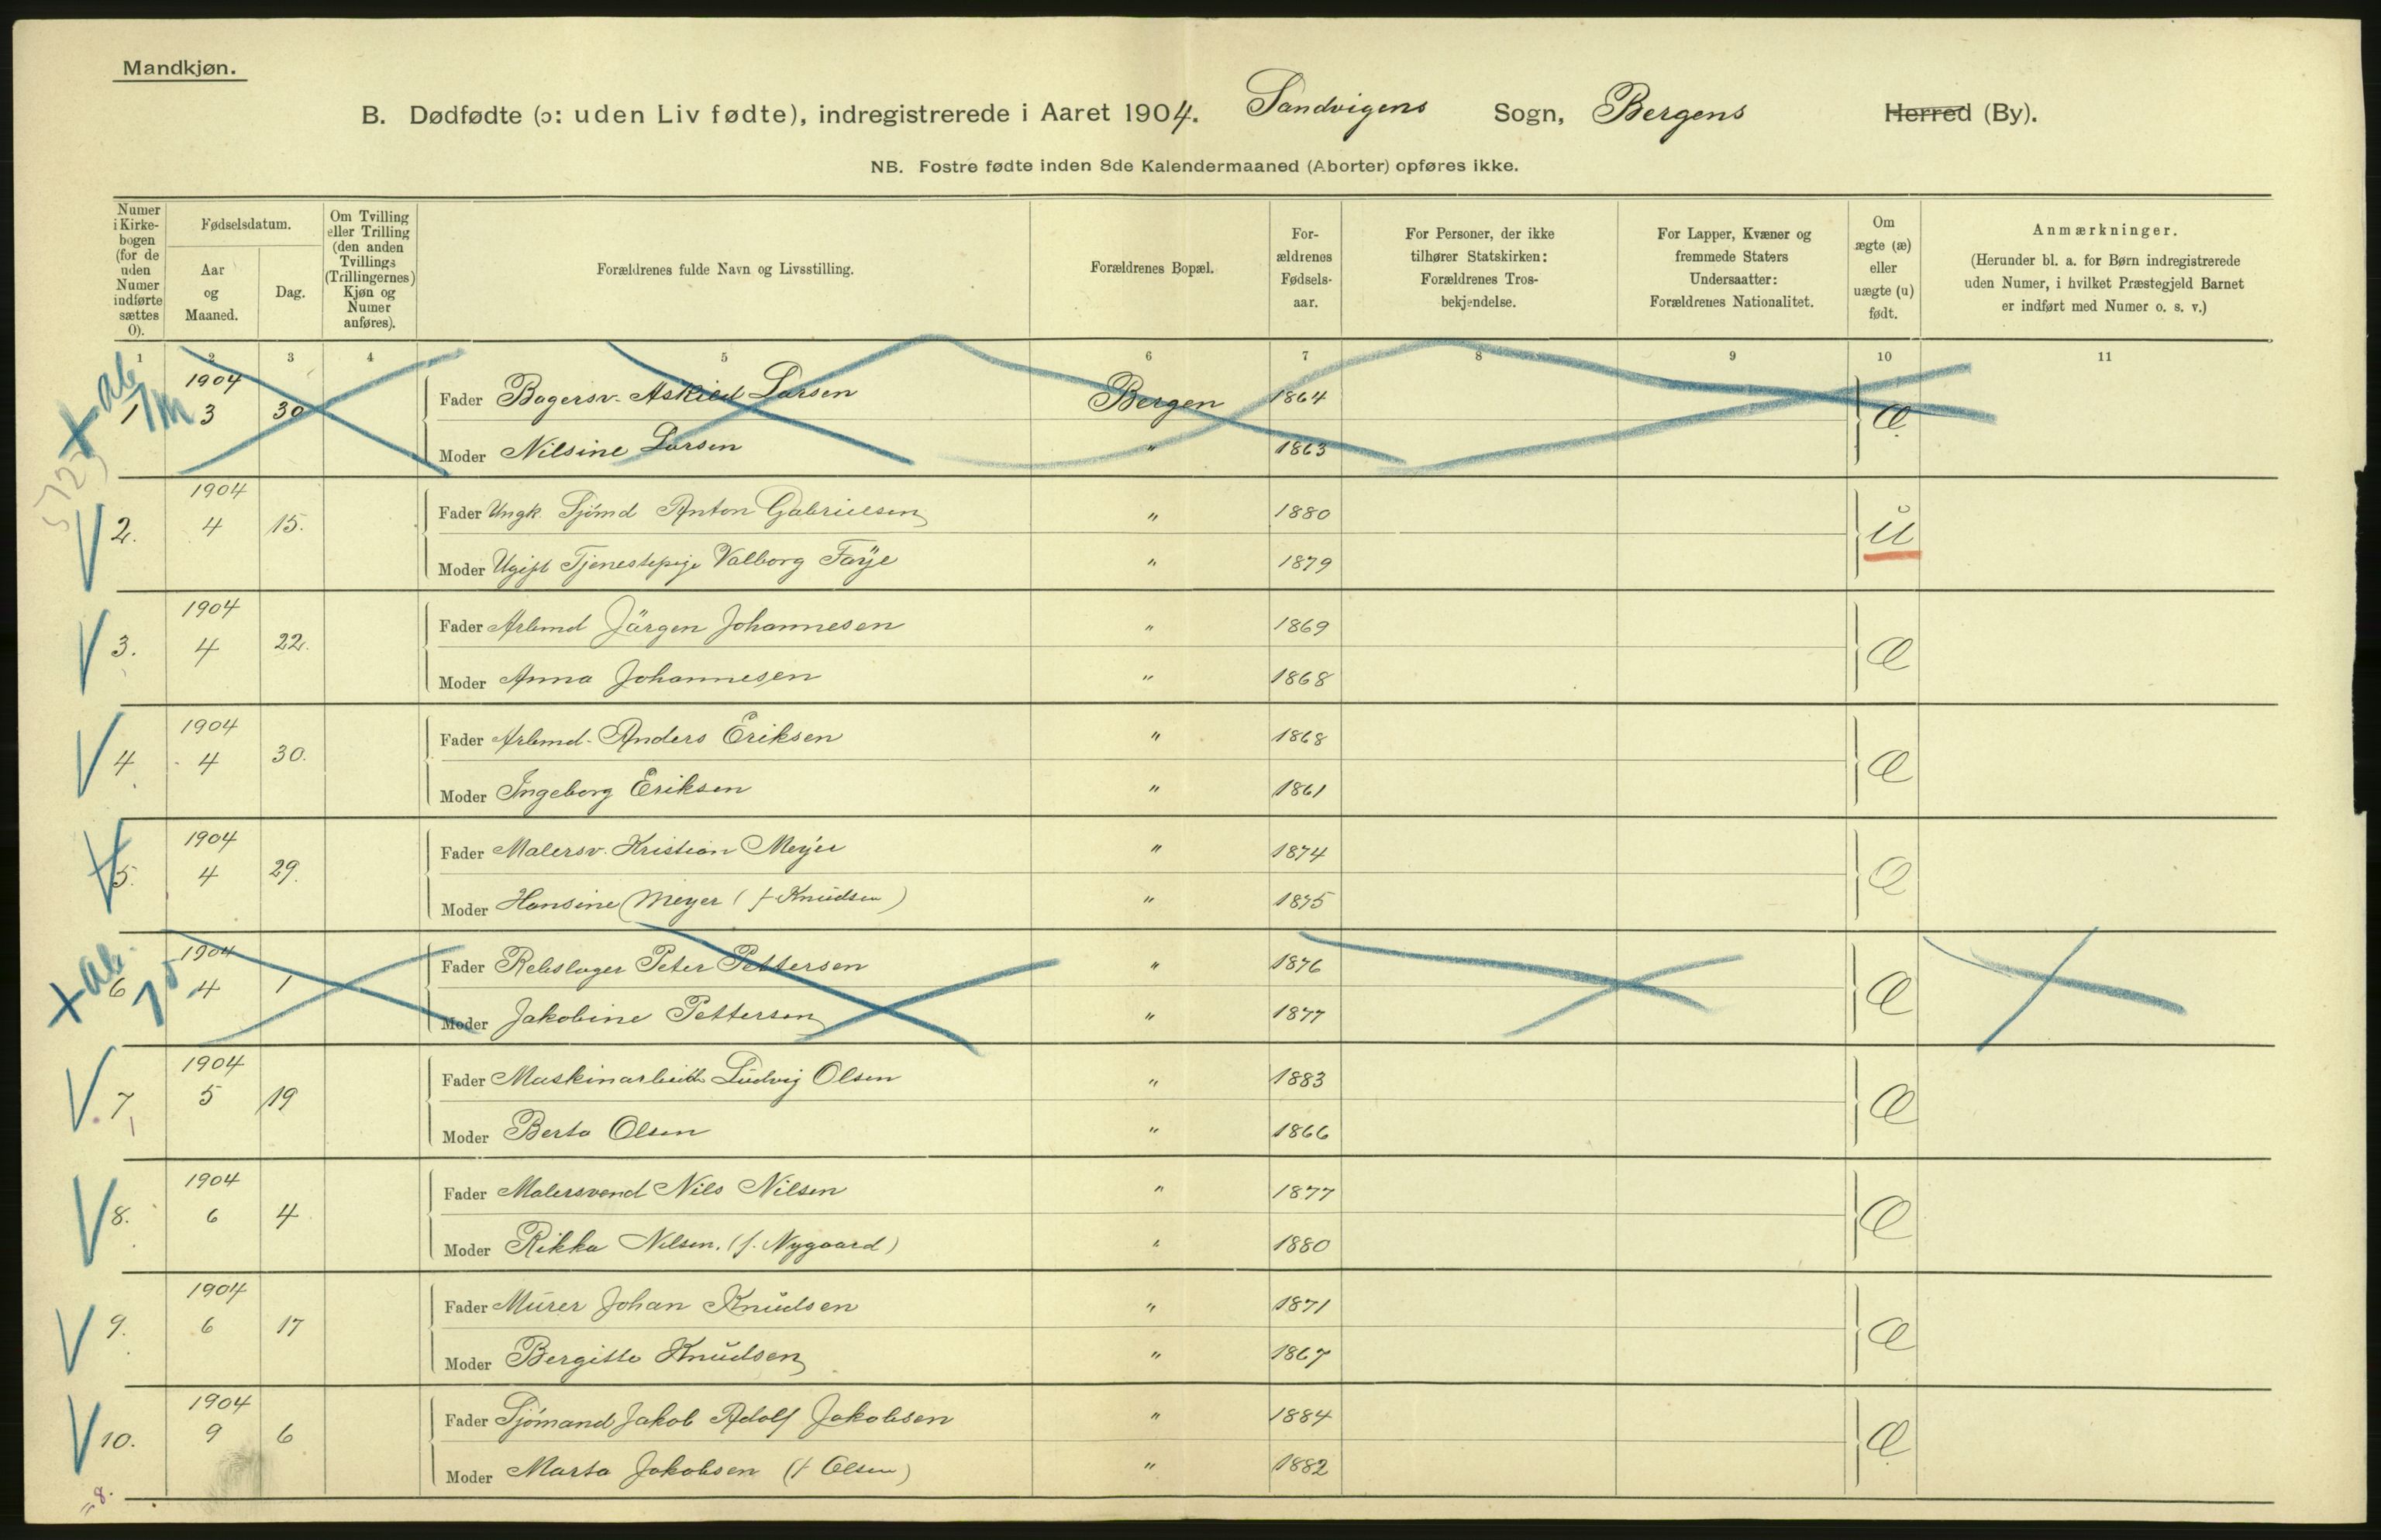 Mandkjøn.
B. Dødfødte (ɔ: uden Liv fødte), indregistrerede i Aaret 1904. Sandvigens Sogn, Bergens Herred (By).
NB. Fostre fødte inden 8de Kalendermaaned (Aborter) opføres ikke.
Numer i Kirkebogen (for de uden Numer indførte sættes 0).
Fødselsdatum.
Aar og Maaned.
Dag.
Om Tvilling eller Trilling (den anden Tvillings (Trillingernes) Kjøn og Numer anføres).
Forældrenes fulde Navn og Livsstilling.
Forældrenes Bopæl.
Forældrenes Fødselsaar.
For Personer, der ikke tilhører Statskirken: Forældrenes Trosbekjendelse.
For Lapper, Kvæner og fremmede Staters Undersaatter: Forældrenes Nationalitet.
Om ægte (æ) eller uægte (u) født.
Anmærkninger.
(Herunder bl. a. for Børn indregistrerede uden Numer, i hvilket Præstegjeld Barnet er indført med Numer o. s. v.)
1 2 3 4 5 6 7 8 9 10 11
1904
1 3 30 Fader Bagersv. Larsen Bergen 1864 Æ
Moder Nilsine Larsen " 1863
1904
2. 4 15. Fader Ungk. Sjömd Anton Gabrielsen " 1880 u
Moder Ugift Tjenestepige Valborg Faÿe " 1879
1904
3. 4 22. Fader Arbmd Järgen Johannesen " 1869 Æ
Moder Anna Johannesen " 1868
1904
4 4 30. Fader Arbmd. Anders Eriksen " 1868 Æ
Moder Ingeborg Eriksen " 1861
1904
5. 4 29. Fader Malersv. Kristian Meyer " 1874 Æ
Moder Hansine Meyer (f Knudsen) " 1875
1904
6 4 1 Fader Rebslager Peter Pettersen " 1876 Æ
Moder Jakobine Pettersen " 1877
1904
7 5 19 Fader Maskinarbeider Ludvig Olsen " 1883 Æ
Moder Berta Olsen " 1866
1904
8. 6 4 Fader Malersvend Nils Nilsen " 1877 Æ
Moder Rikka Nilsen. (f. Nygaard) " 1880
1904
9. 6 17 Fader Murer Johan Knudsen " 1871 Æ
Moder Bergitte Knudsen " 1867
1904
10. 9 6 Fader Sjömand Jakob Adolf Jakobsen " 1884 Æ
Moder Marta Jakobsen (f Olsen) " 1882
"8.